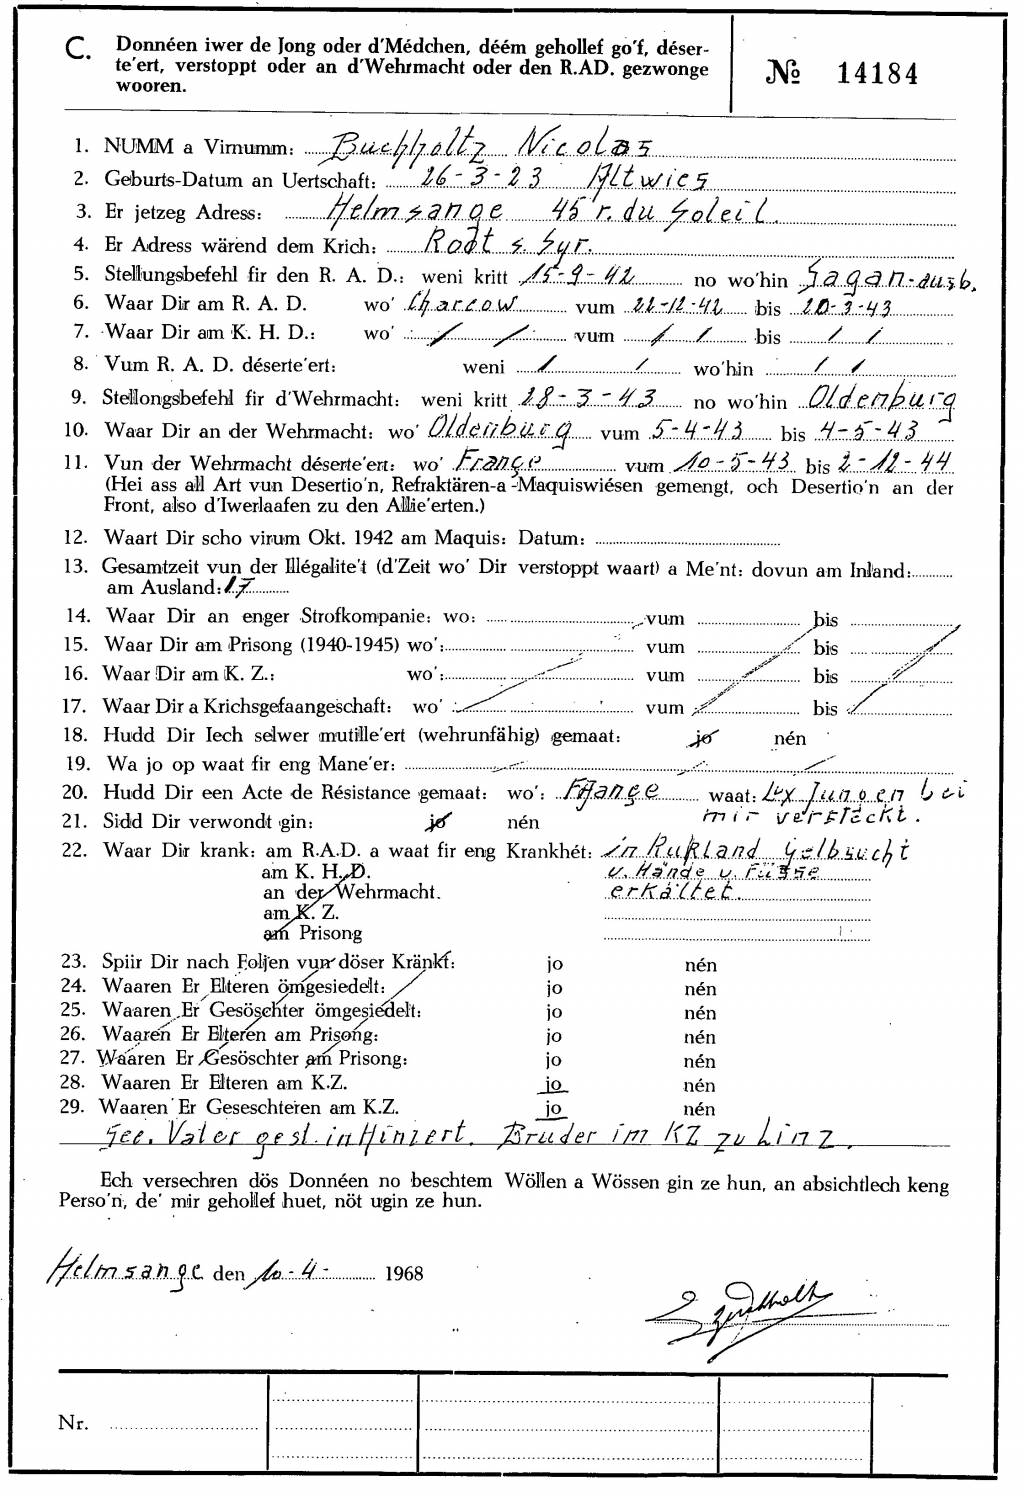 C. Donnéen iwer de Jong oder d'Médchen, déém gehollef go'f, déser-
te'ert, verstoppt oder an d'Wehrmacht oder den R.AD. gezwonge
wooren.
№ 14184
1. NUMM a Virnumm: Buchholtz Nicolas
2. Geburts-Datum an Uertschaft: 26-3-23 Altwies
3. Er jetzeg Adress: Helmsange 45 r. du Soleil.
4. Er Adress wärend dem Krich: Rodt s. Syr.
5. Stellungsbefehl fir den R. A. D.: weni kritt 15-9-42 no wo'hin Sagan-ausb.
6. Waar Dir am R. A. D. wo' Charcow vum 22-12-42 bis 20-3-43
7. Waar Dir am K. H. D.: wo' / / vum / / bis / /
8. Vum R. A. D. déserte'ert: weni / / wo'hin / /
9. Stellongsbefehl fir d'Wehrmacht: weni kritt 28-3-43 no wo'hin Oldenburg
10. Waar Dir an der Wehrmacht: wo' Oldenburg vum 5-4-43 bis 4-5-43
11. Vun der Wehrmacht déserte'ert: wo' Françe vum 10-5-43 bis 2-12-44
(Hei ass all Art vun Desertio'n, Refraktären-a-Maquiswiésen gemengt, och Desertio'n an der
Front, also d'Iwerlaafen zu den Allie'erten.)
12. Waart Dir scho virum Okt. 1942 am Maquis: Datum:
13. Gesamtzeit vun der Illégalite't (d'Zeit wo' Dir verstoppt waart) a Me'nt: dovun am Inland:
am Ausland: 17
14. Waar Dir an enger Strofkompanie: wo: vum bis
15. Waar Dir am Prisong (1940-1945) wo': vum bis
16. Waar Dir am K. Z.: wo': vum bis
17. Waar Dir a Krichsgefaangeschaft: wo' vum bis
18. Hudd Dir Iech selwer mutille'ert (wehrunfähig) gemaat: jo nén
19. Wa jo op waat fir eng Mane'er:
20. Hudd Dir een Acte de Résistance gemaat: wo': Françe waat: Lux Jungen bei
mir versteckt.
21. Sidd Dir verwondt gin: jo nén
22. Waar Dir krank: am R.A.D. a waat fir eng Krankhét: in Rußland Gelbsucht
am K. H. D. u. Hände u. Füsse
an der Wehrmacht. erkältet.
am K. Z.
am Prisong
23. Spiir Dir nach Foljen vun döser Kränkt: jo nén
24. Waaren Er Elteren ömgesiedelt: jo nén
25. Waaren Er Gesöschter ömgesiedelt: jo nén
26. Waaren Er Elteren am Prisong: jo nén
27. Waaren Er Gesöschter am Prisong: jo nén
28. Waaren Er Elteren am K.Z. jo nén
29. Waaren Er Geseschteren am K.Z. jo nén
Vater gest. in Hinzert. Bruder im KZ zu Linz.
Ech versechren dös Donnéen no beschtem Wöllen a Wössen gin ze hun, an absichtlech keng
Perso'n, de' mir gehollef huet, nöt ugin ze hun.
Helmsange den 10-4- 1968
Nr.